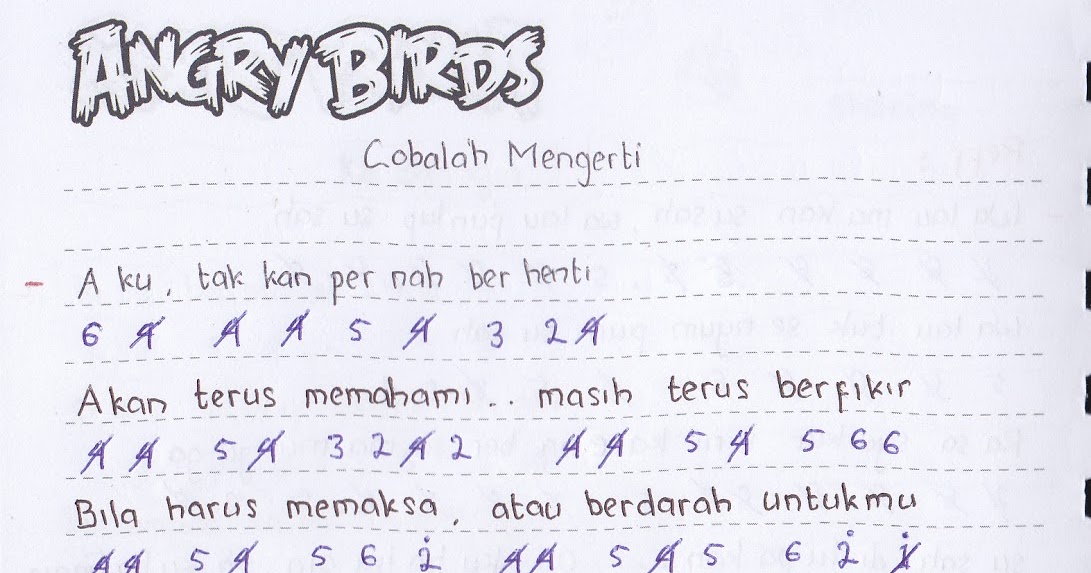 ANGRY BIRDS
Cobalah Mengerti
- A ku, tak kan per nah ber henti
6 4̸ 4̸ 4̸ 5 4̸ 3 2 4̸
Akan terus memahami.. masih terus berfikir
4̸ 4̸ 5 4̸ 3 2 4̸ 2 4̸ 4̸ 5 4̸ 5 6 6
Bila harus memaksa, atau berdarah untukmu
4̸ 4̸ 5 4̸ 5 6 2̇ 4̸ 4̸ 5 4̸ 5 6 2̇ 1̸̇